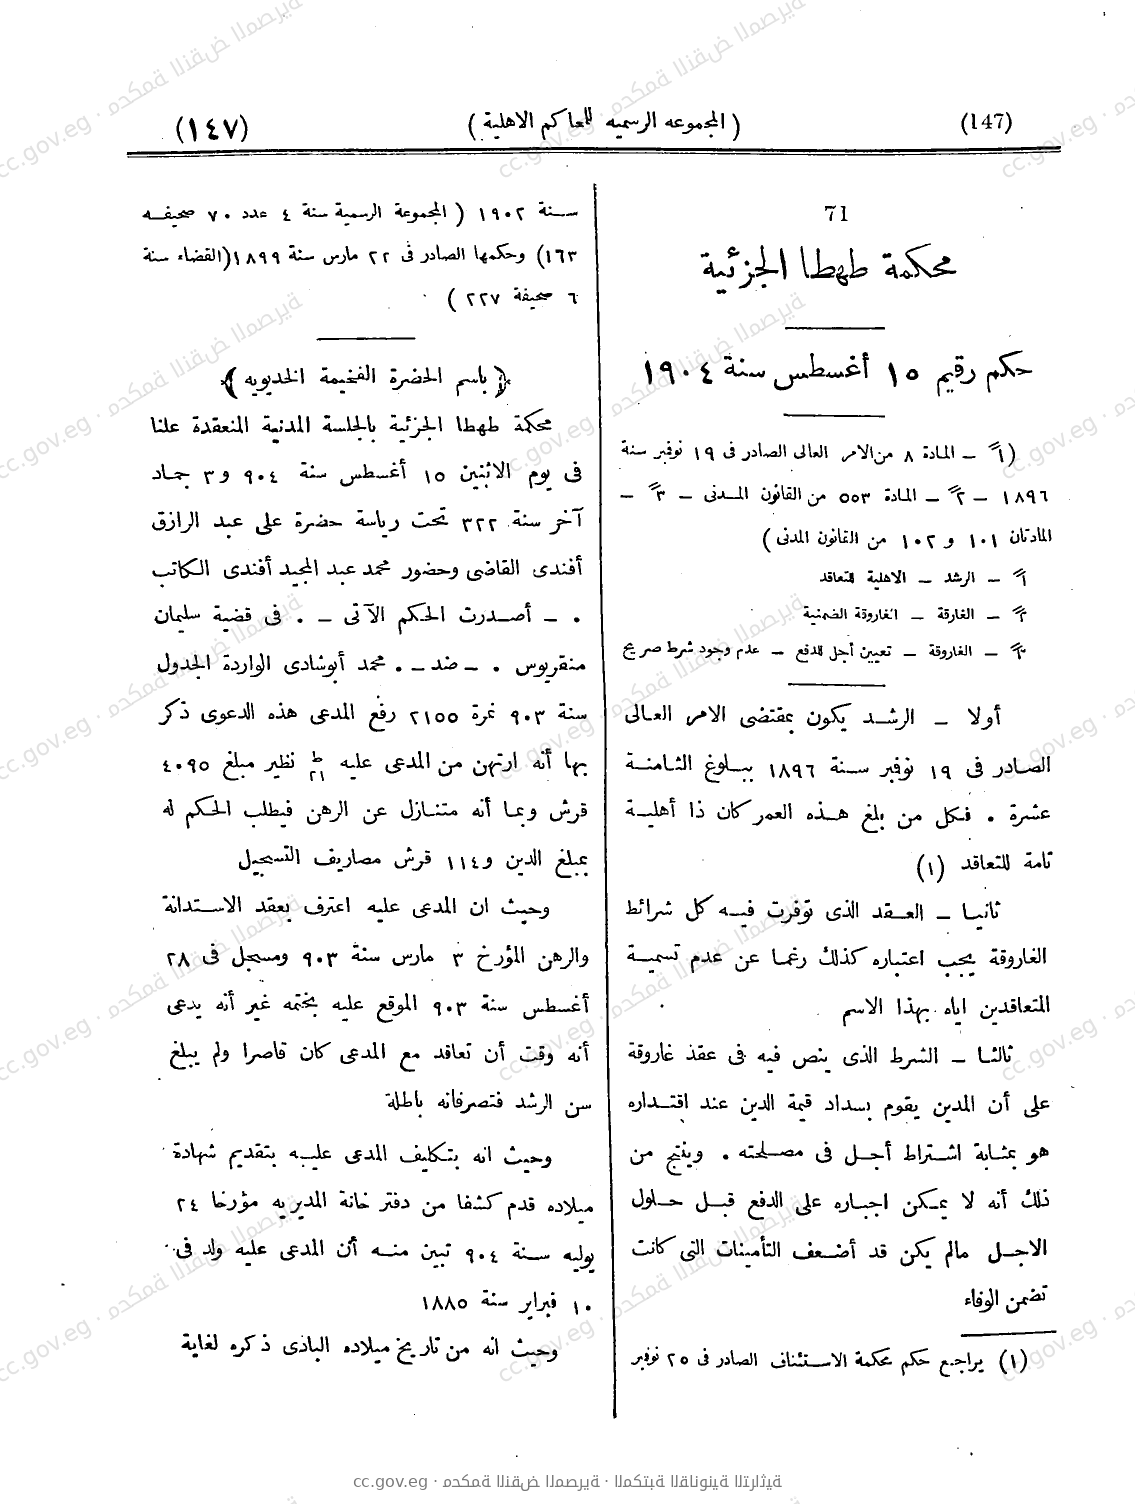 (147) ( المجموعه الرسميه للمحاكم الاهلية ) (١٤٧)
71
محكمة طهطا الجزئية
حكم رقيم ١٥ أغسطس سنة ١٩٠٤
(١ً – المادة ٨ من الامر العالى الصادر فى ١٩ نوفمبر سنة
١٨٩٦ – ٢ً – المادة ٥٥٣ من القانون المدنى – ٣ً –
المادتان ١٠١ و ١٠٢ من القانون المدنى )
١ً – الرشد – الاهلية للتعاقد
٢ً – الغارقة – الغاروقة الضمنية
٣ً – الغاروقة – تعيين أجل للدفع – عدم وجود شرط صريح
أولا – الرشد يكون بمقتضى الامر العالى
الصادر فى ١٩ نوفمبر سنة ١٨٩٦ ببلوغ الثامنة
عشرة . فكل من بلغ هذه العمر كان ذا أهلية
تامة للتعاقد (١)
ثانيا – العقد الذى توفرت فيه كل شرائط
الغاروقة يجب اعتباره كذلك رغما عن عدم تسمية
المتعاقدين اياه بهذا الاسم
ثالثا – الشرط الذى ينص فيه فى عقد غاروقة
على أن المدين يقوم بسداد قيمة الدين عند اقتداره
هو بمثابة اشتراط أجل فى مصلحته . وينتج من
ذلك أنه لا يمكن اجباره على الدفع قبل حلول
الاجل مالم يكن قد أضعف التأمينات التى كانت
تضمن الوفاء
(١) يراجع حكم محكمة الاستئناف الصادر فى ٢٥ نوفمبر
سنة ١٩٠٢ ( المجموعة الرسمية سنة ٤ عدد ٧٠ صحيفه
١٦٣) وحكمها الصادر فى ٢٢ مارس سنة ١٨٩٩ (القضاء سنة
٦ صحيفة ٢٢٧ )
﴿ باسم الحضرة الفخيمة الخديويه ﴾
محكمة طهطا الجزئية بالجلسة المدنية المنعقدة علنا
فى يوم الاثنين ١٥ أغسطس سنة ٩٠٤ و ٣ جماد
آخر سنة ٣٢٢ تحت رياسة حضرة على عبد الرازق
أفندى القاضى وحضور محمد عبد المجيد أفندى الكاتب
. – أصدرت الحكم الآتى – . فى قضية سليمان
منقريوس . – ضد – . محمد أبوشادى الواردة الجدول
سنة ٩٠٣ نمرة ٢١٥٥ رفع المدعى هذه الدعوى ذكر
بها أنه ارتهن من المدعى عليه ط ٢١ نظير مبلغ ٤٠٩٥
قرش وبما أنه متنازل عن الرهن فيطلب الحكم له
بمبلغ الدين و ١١٤ قرش مصاريف التسجيل
وحيث ان المدعى عليه اعترف بعقد الاستدانة
والرهن المؤرخ ٣ مارس سنة ٩٠٣ ومسجل فى ٢٨
أغسطس سنة ٩٠٣ الموقع عليه بختمه غير أنه يدعى
أنه وقت أن تعاقد مع المدعى كان قاصرا ولم يبلغ
سن الرشد فتصرفاته باطلة
وحيث انه بتكليف المدعى عليه بتقديم شهادة
ميلاده قدم كشفا من دفتر خانة المديريه مؤرخا ٢٤
يوليه سنة ٩٠٤ تبين منه أن المدعى عليه ولد فى
١٠ فبراير سنة ١٨٨٥
وحيث انه من تاريخ ميلاده البادى ذكره لغاية
cc.gov.eg · محكمة النقض المصرية · المكتبة القانونية التراثية